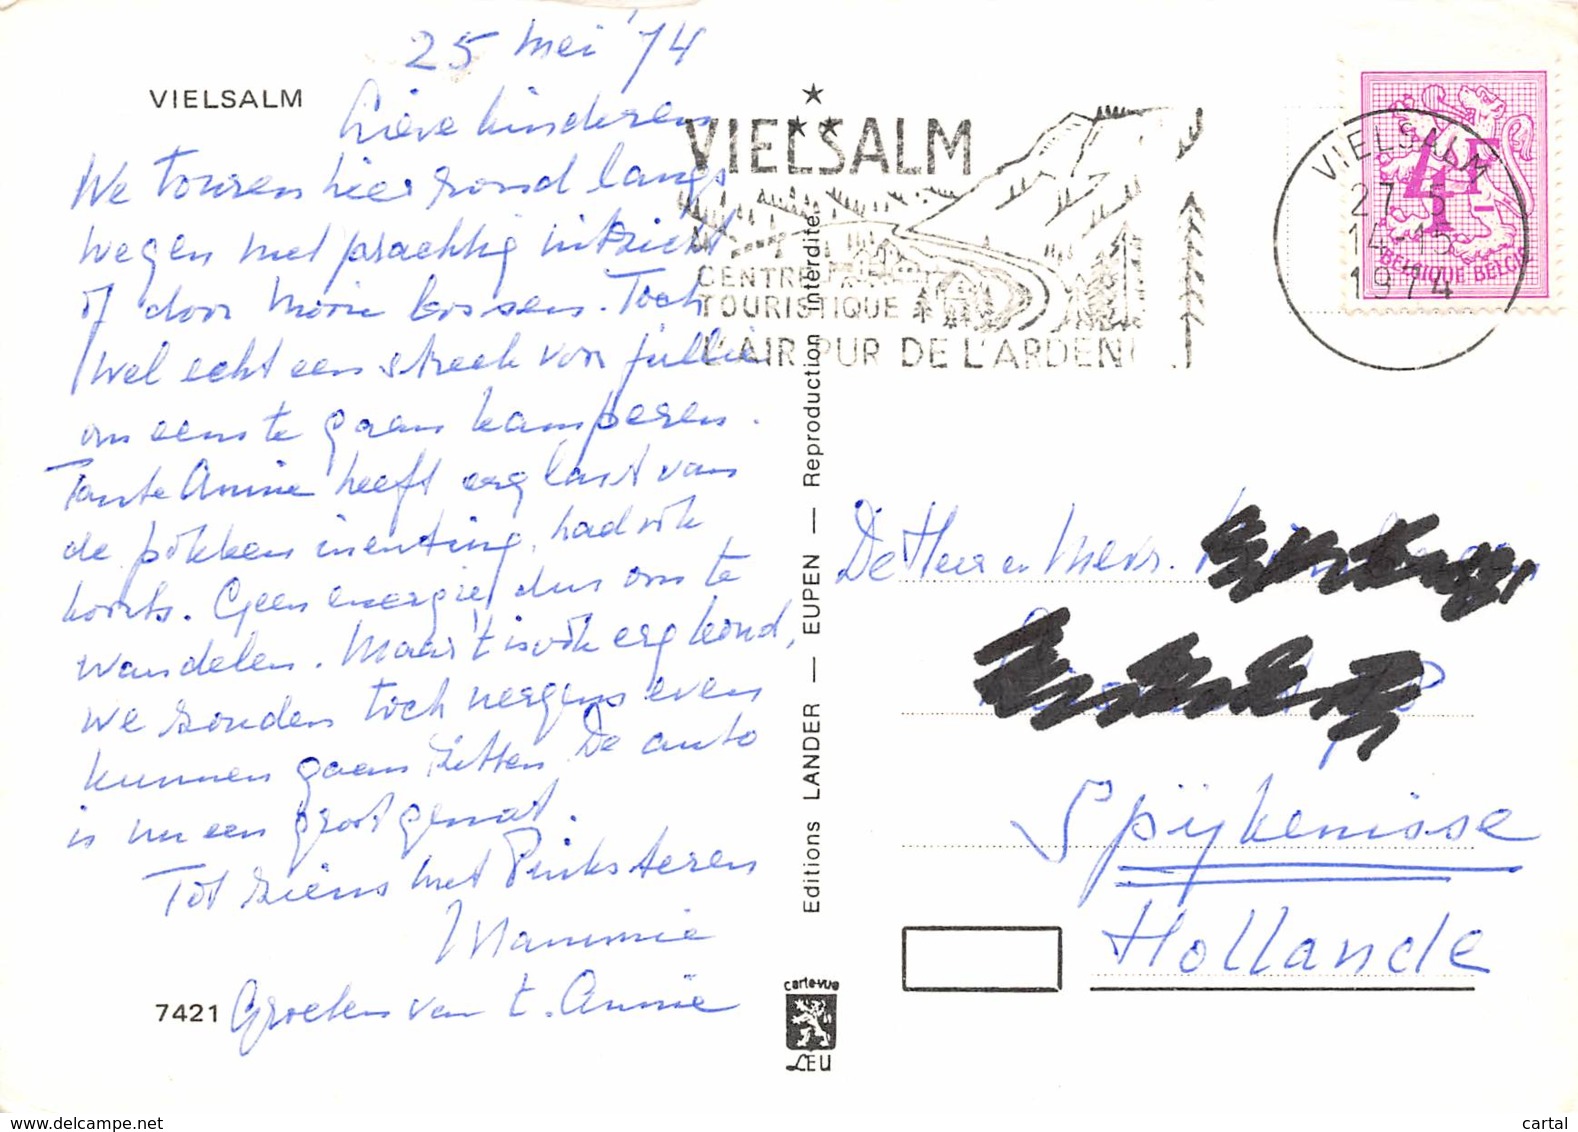 25 Mei '74
VIELSALM
Lieve kinderen
We touren hier rond langs
wegen met prachtig uitzicht
of door mooie bossen. Toch
wel echt een streek voor jullie
om eens te gaan kamperen.
Tante Annie heeft erg last van
de pokken inenting, had ook
koorts. Geen energie dus om te
wandelen. Maar 't is ook erg koud,
we zouden toch nergens even
kunnen gaan zitten. De auto
is nu een groot gemak.
Tot ziens met Pinksteren
Mammie
Groeten van t. Annie
7421
Editions LANDER — EUPEN — Reproduction interdite.
carte-vue
LEU
VIELSALM
CENTRE
TOURISTIQUE
L'AIR PUR DE L'ARDENNE
VIELSALM
27-5
14-15
1974
4F
BELGIQUE BELGIË
De Heer en Mevr.
Spijkenisse
Hollande
www.delcampe.net
cartal